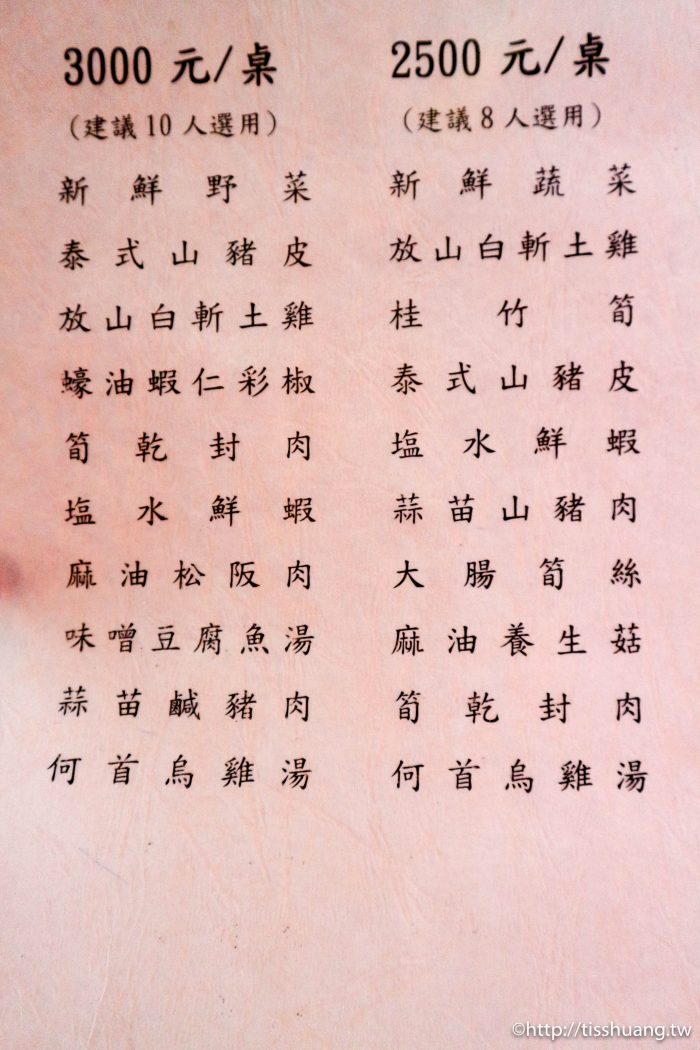 3000 元/桌
（建議 10 人選用）
新鮮野菜
泰式山豬皮
放山白斬土雞
蠔油蝦仁彩椒
筍乾封肉
塩水鮮蝦
麻油松阪肉
味噌豆腐魚湯
蒜苗鹹豬肉
何首烏雞湯
2500 元/桌
（建議 8 人選用）
新鮮蔬菜
放山白斬土雞
桂竹筍
泰式山豬皮
塩水鮮蝦
蒜苗山豬肉
大腸筍絲
麻油養生菇
筍乾封肉
何首烏雞湯
©http://tisshuang.tw